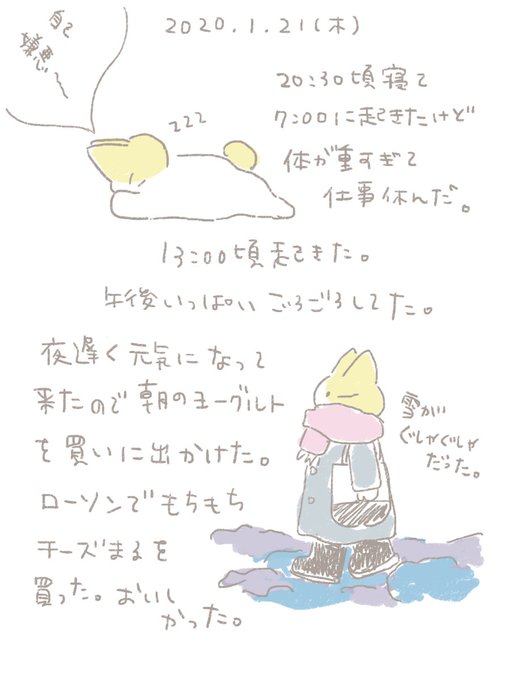 2020.1.21(木)
自己
嫌悪〜
zzz
20:30頃寝て
7:00に起きたけど
体が重すぎて
仕事休んだ。
13:00頃起きた。
午後いっぱいごろごろしてた。
夜遅く元気になって
来たので朝のヨーグルト
を買いに出かけた。
ローソンでもちもち
チーズまるを
買った。おいし
かった。
雪が
ぐしゃぐしゃ
だった。